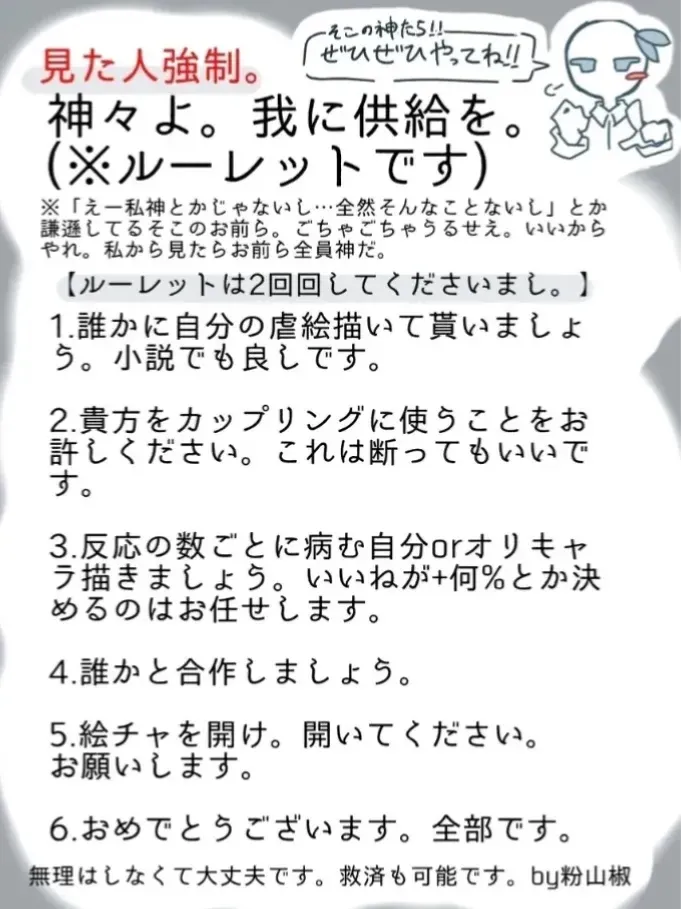 そこの神たち!!
ぜひぜひやってね!!
見た人強制。
神々よ。我に供給を。
(※ルーレットです)
※「えー私神とかじゃないし…全然そんなことないし」とか
謙遜してるそこのお前ら。ごちゃごちゃうるせえ。いいから
やれ。私から見たらお前ら全員神だ。
【ルーレットは2回回してくださいまし。】
1.誰かに自分の虐絵描いて貰いましょ
う。小説でも良しです。
2.貴方をカップリングに使うことをお
許しください。これは断ってもいいで
す。
3.反応の数ごとに病む自分orオリキャ
ラ描きましょう。いいねが+何%とか決
めるのはお任せします。
4.誰かと合作しましょう。
5.絵チャを開け。開いてください。
お願いします。
6.おめでとうございます。全部です。
無理はしなくて大丈夫です。救済も可能です。by粉山椒